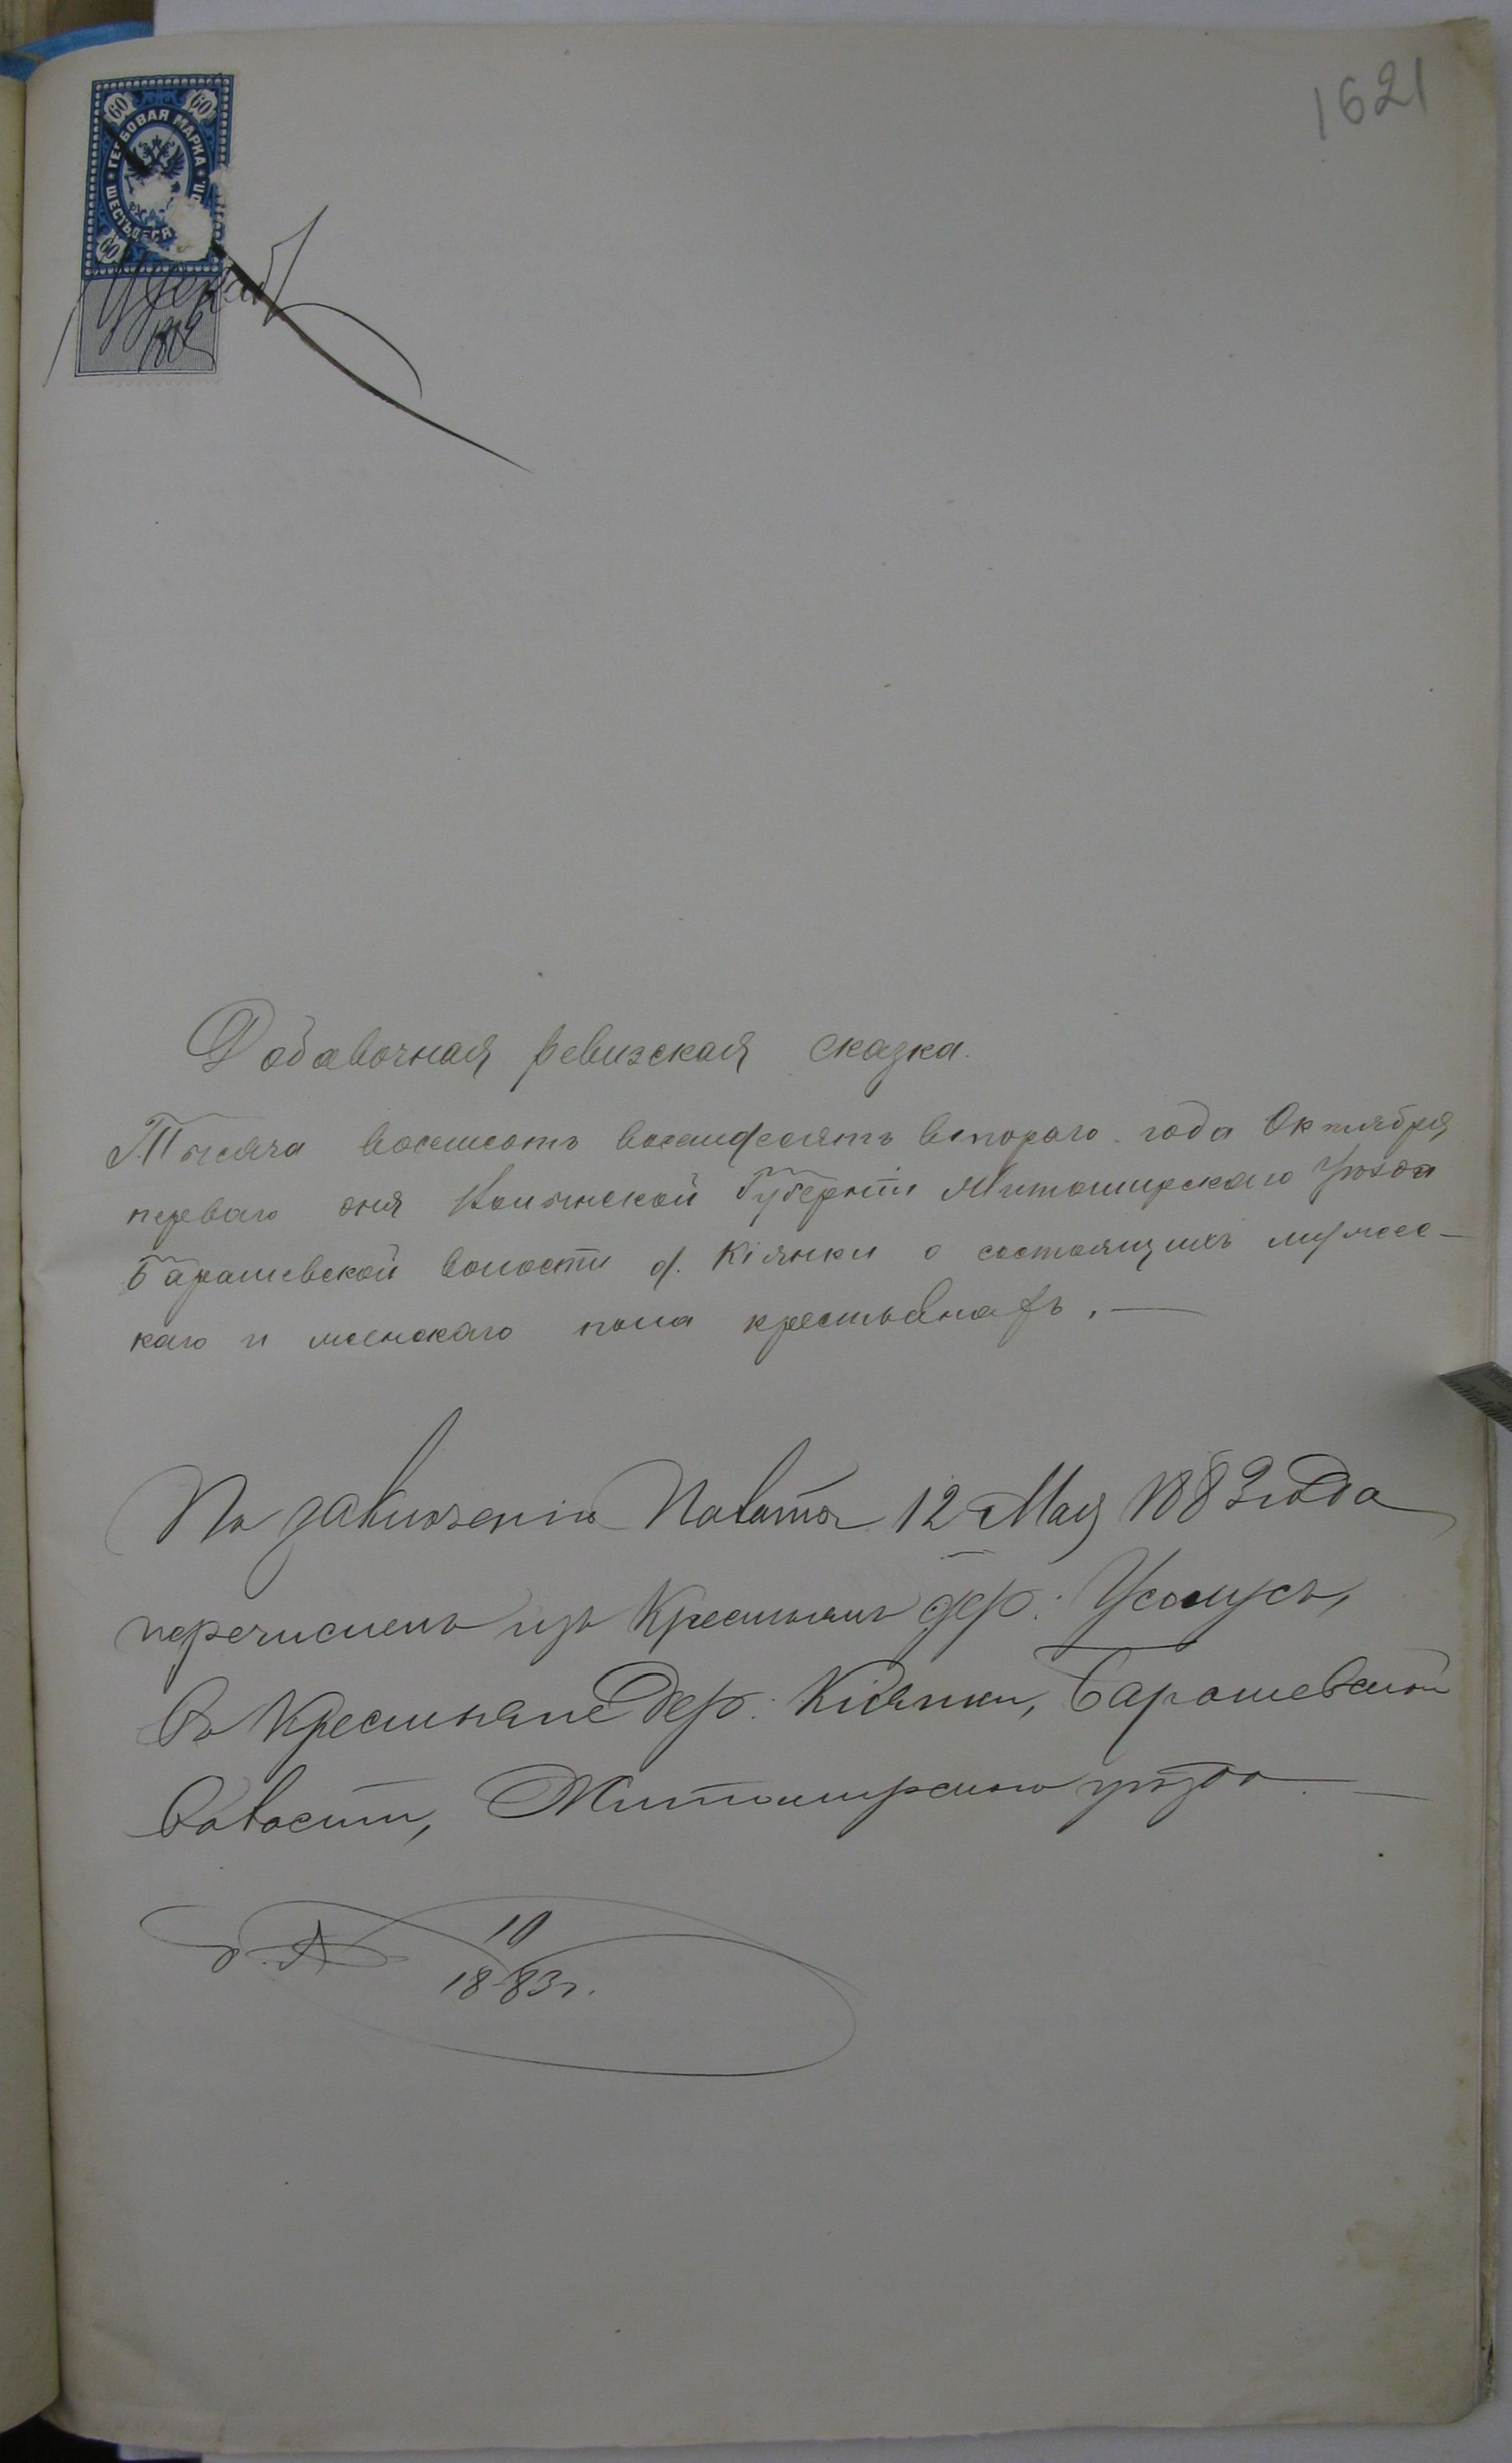 1621
60 60
ГЕРБОВАЯ МАРКА
ШЕСТЬДЕСЯ
60
Добавочная ревизская сказка.
Тысяча восемсотъ восемдесятъ втораго года Октября
перваго дня Волынской Губерніи Житомирскаго Уѣзда
Барашевской волости д. Кіянки о состоящихъ мужес-
каго и женскаго пола крестьянахъ. —
По заключенію Палаты 12 Мая 1883 года
перечисленъ изъ Крестьянъ дер:
въ Крестьяне дер: Кіянки, Барашевской
волости, Житомирскаго уѣзда. —
10
1883 г.